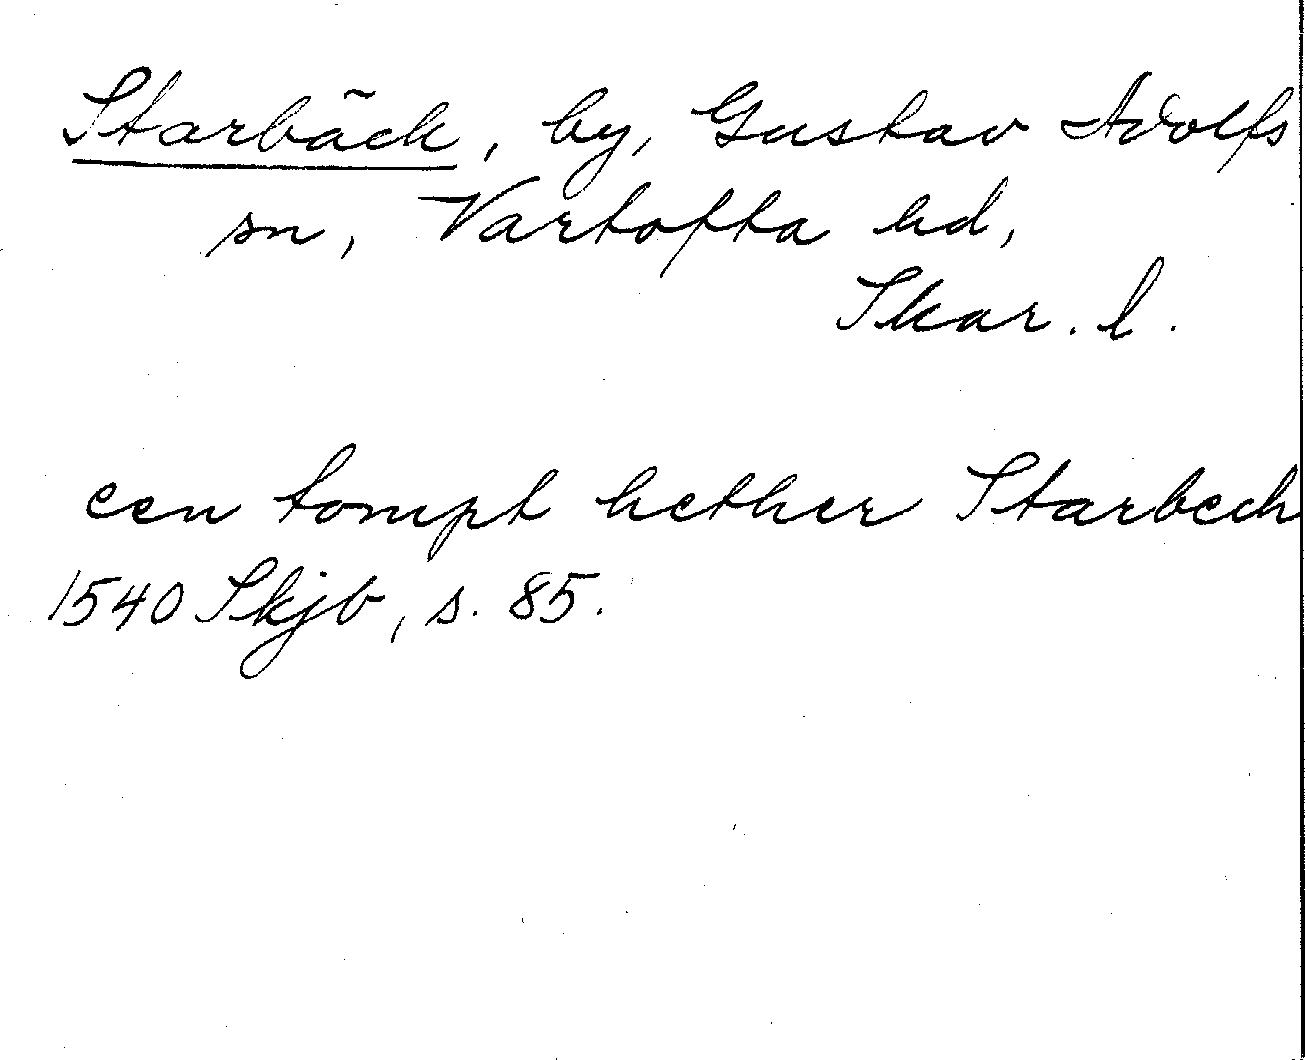 Starbäck, by, Gustav Adolfs
sn, Vartofta hd,
Skar. l.
een tompt hether Starbech
1540 Skjb, s. 85.